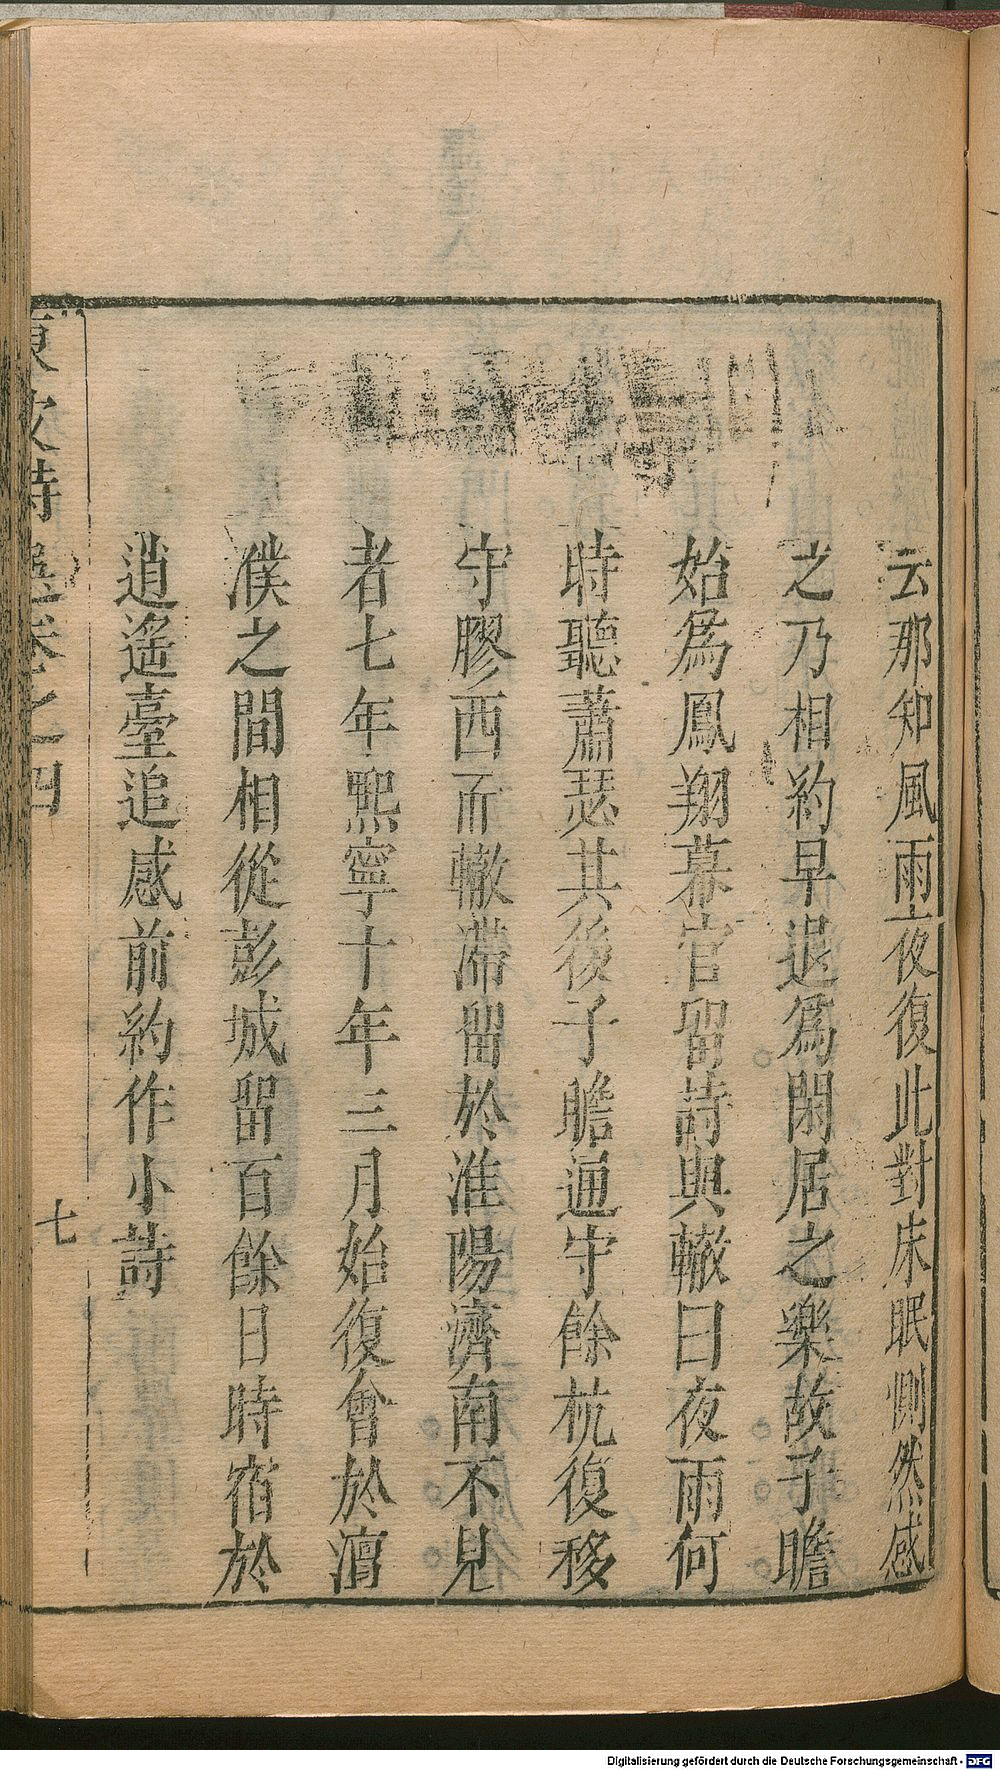 云那知風雨夜復此對床眠惻然感
之乃相約早退爲閑居之樂故子瞻
始爲鳳翔幕官留詩與轍曰夜雨何
時聽蕭瑟其後子瞻通守餘杭復移
守膠西而轍滯留於淮陽濟南不見
者七年熙寧十年三月始復會於澶
濮之間相從彭城留百餘日時宿於
逍遙臺追感前約作小詩
東坡詩選卷之四
七
Digitalisierung gefördert durch die Deutsche Forschungsgemeinschaft - DFG